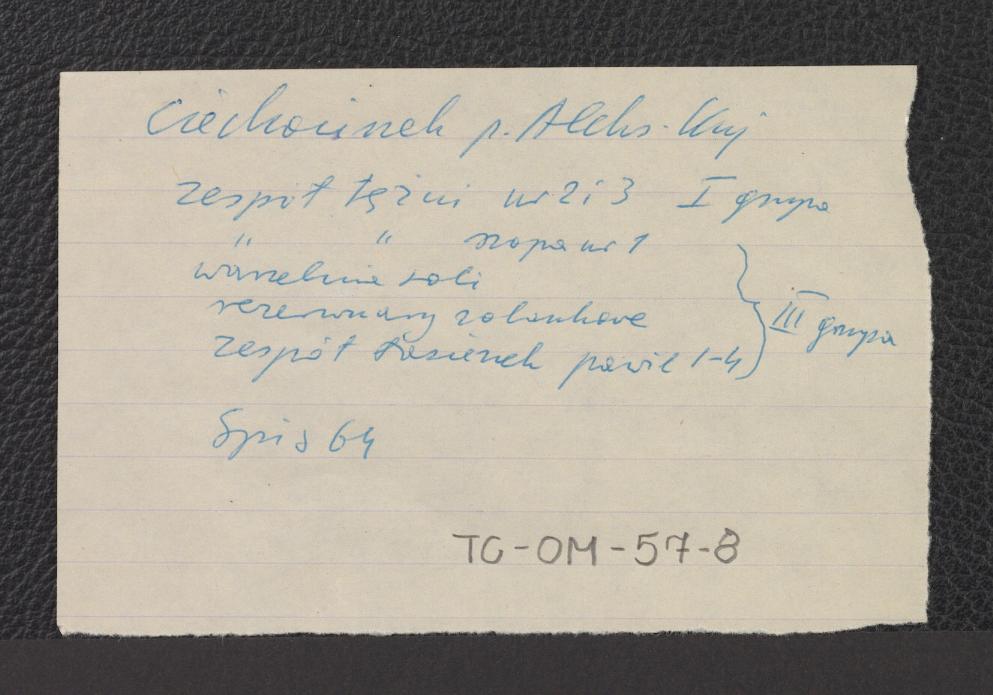 Ciechocinek p. Aleks. Kuj
zespół tężni nr 2 i 3 I grupa
" " szopa nr 1
warzelnia soli
rezerwuary solankowe
zespół Łazienek pawil 1-4 } III grupa
Spis 64
TC-OM-57-8